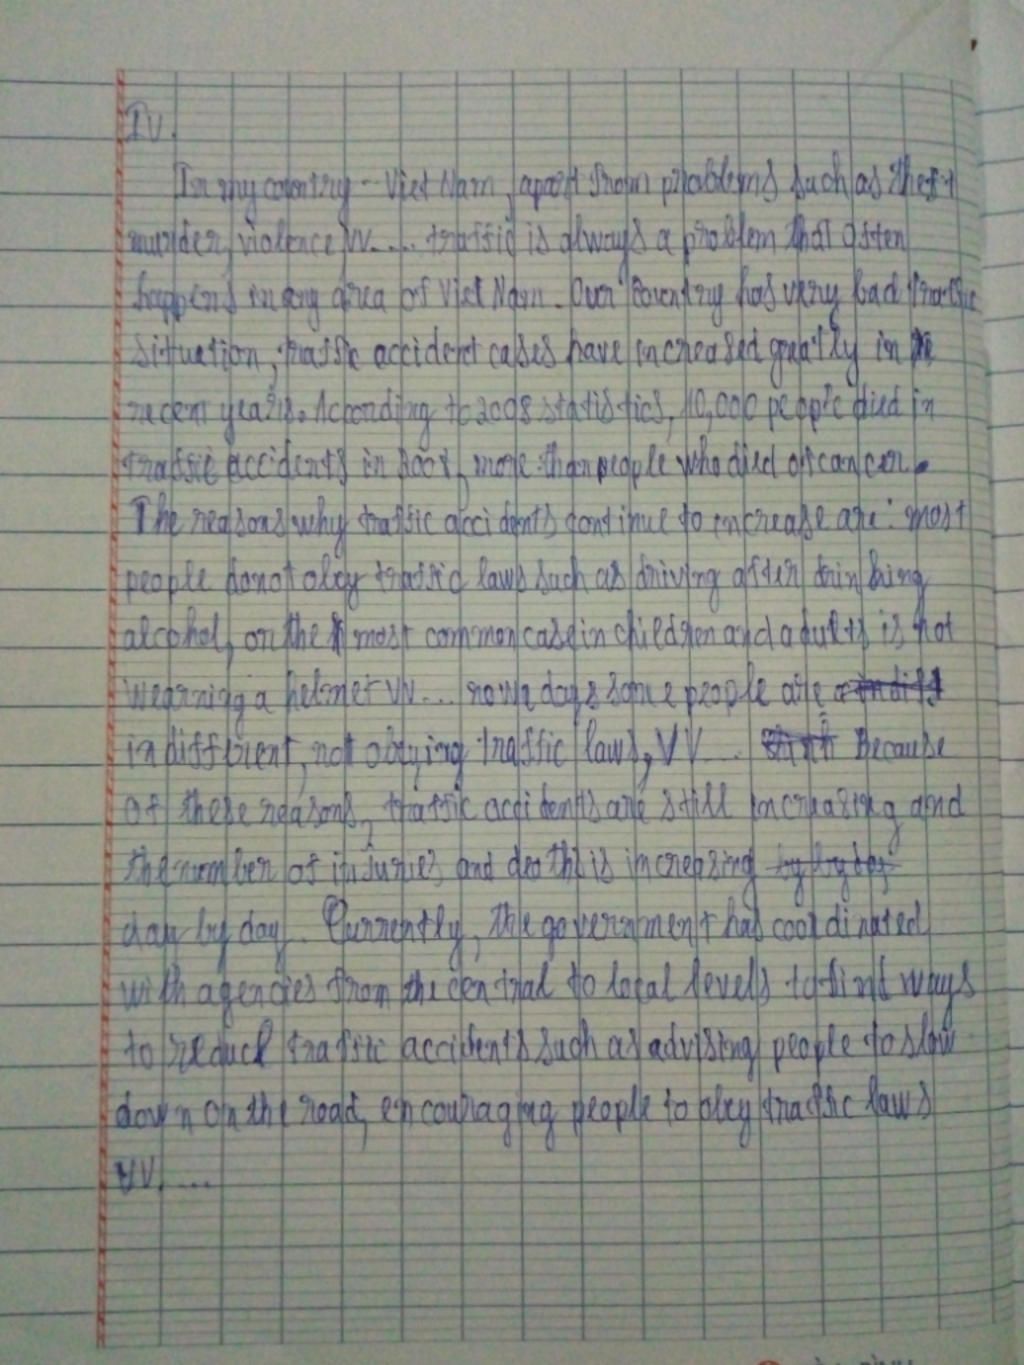 IV.
In my country - Viet Nam, apart from problems such as theft
murder, violence, vv.... traffic is always a problem that often
happens in any area of Viet Nam. Our country has very bad traffic
situation, traffic accident cases have increased greatly in
recent years. According to 2008 statistics, 10,000 people died in
traffic accidents in 2008, more than people who died of cancer.
The reasons why traffic accidents continue to increase are: most
people donot obey traffic laws such as driving after drinking
alcohol, or the most common case in children and adults is not
wearning a helmet vv... nowadays some people are
indifferent, not obeying traffic laws, vv... Because
of these reasons, traffic accidents are still increasing and
the number of injuries and deaths is increasing
day by day. Currently, the government has coordinated
with agencies from the central to local levels to find ways
to reduce traffic accidents such as advising people to slow
down on the road, encouraging people to obey traffic laws
vv. ...